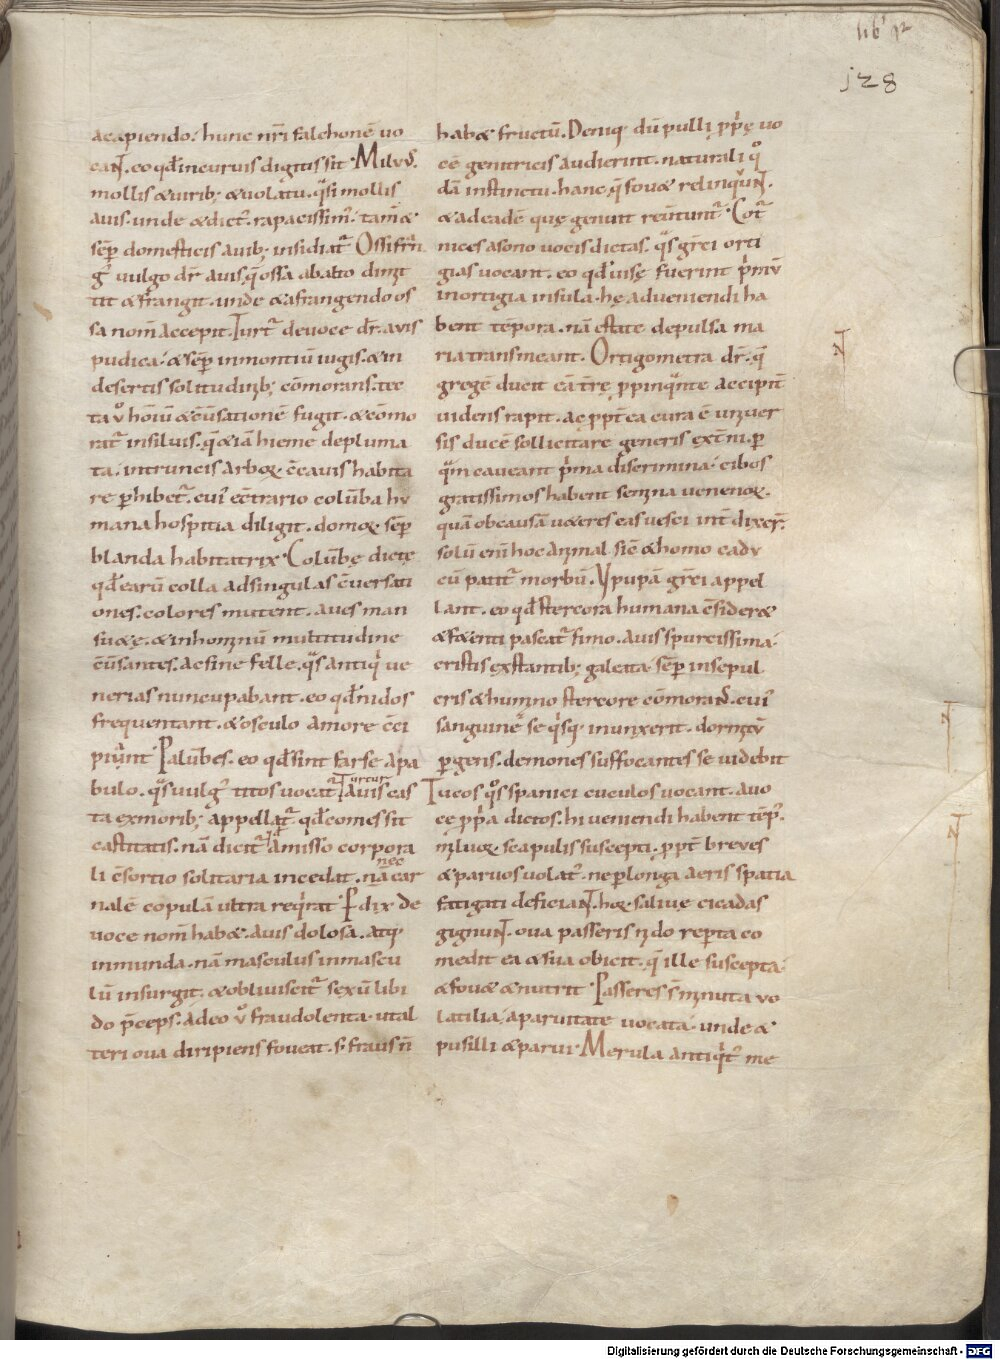 lib' 12
128
accipiendo. hunc nr̄i falchonē uo
caNT. eo qđ incuruis digitis sit. Miluus.
mollis & uirib; & uolatu. q̄si mollis
auis. unde & dict'. rapacissim'. tam̄ &
sēp domesticis auib; insidiat'. Ossifrin
g' uulgo dr̄ auis. q̄ ossa ab alto dimit
tit & frangit. unde & a frangendo os
sa nom̄ accepit. Turt' de uoce dr̄. auis
pudica. & sēp in montiū iugis. & in
desertis solitudinib; cōmorans. tec
ta ů hoīū & cōuersationē fugit. & cōmo
rat' in siluis. q̄ & iā hieme depluma
ta. in truncis arboꝝ c̄cauis habita
re phibet'. cui' c̄trario colūba hu
mana hospitia diligit. domoꝝ sēp
blanda habitatrix. Colūbę dictę
qđ earū colla ad singulas c̄uersati
ones. colores mutent. aues man
su&ę. & in hominū multitudine
c̄uersantes. ac sine felle. q̄s antiq' ue
nerias nuncupabant. eo qđ nidos
frequentant. & osculo amore c̄ci
piunt. Palūbes. eo qđ sint farse a pa
bulo. q̄s uulg' titos uocat'. Turtur Auis cas
ta ex morib; appellat'. qđ comes sit
castitatis. nā dicit' qđ amisso corpora
li c̄sortio solitaria incedat. nec nā car
nalē copulā ultra req'rat. Pdix de
uoce nom̄ hab&. auis dolosa. atq;
inmunda. nā masculus in mascu
lū insurgit. & obliuiscit' sexū libi
do p̄ceps. Adeo ů fraudolenta. ut al
teri oua diripiens foueat. s; fraus n̄
hab& fructū. Deniq; dū pulli pp̄ę uo
cē genitricis audierint. naturali q°
dā instinctu. hanc q̄ fou& relinquNT.
& ad eadē quę genuit reūtunt'. Cot'
nices a sono uocis dictas. q̄s grēi orti
gias uocant. eo qđ uisę fuerint p'mū
in ortigia insula. hę adueniendi ha
bent tēpora. nā ęstate depulsa ma
ria transmeant. Ortigometra dr̄. q̄
gregē ducit. eā t'rę ppinq̄nte accipit'
uidens rapit. ac ppt̄ea cura ē uniuer
sis ducē sollicitare generis ext̄ni. p
q̄m caueant p'ma discrimina. cibos
gratissimos habent semina uenenoꝝ.
quā ob causā u&eres eas uesci int'dixer'.
solū eni hoc animal sic & homo cadu
cū patit' morbū. Vpupā grēi appel
lant. eo qđ stercora humana c̄sider&
& f&enti pascat' fimo. auis spurcissima.
cristis exstantib; galeata. sēp in sepul
cris & humano stercore cōmorans. cui'
sanguine se q'sq; inunxerit. dormitū
pgens. demones suffocantes se uidebit
Tucos q°s spanici cuculos uocant. a uo
ce pp̄a dictos. hi ueniendi habent tēp'.
miluoꝝ scapulis suscepti. ppt̄ breues
& paruos uolat'. ne p longa aeris spatia
fatigati deficiaNT. hoꝝ saliue cicadas
gignuNT. oua passeris nido repta co
medit ea & sua obicit. q̄ ille suscepta.
& fou& & nutrit. Passeres s̄ minuta uo
latilia, a paruitate uocata. unde &
pusilli & parui. Merula antiq't' me
Digitalisierung gefördert durch die Deutsche Forschungsgemeinschaft - DFG